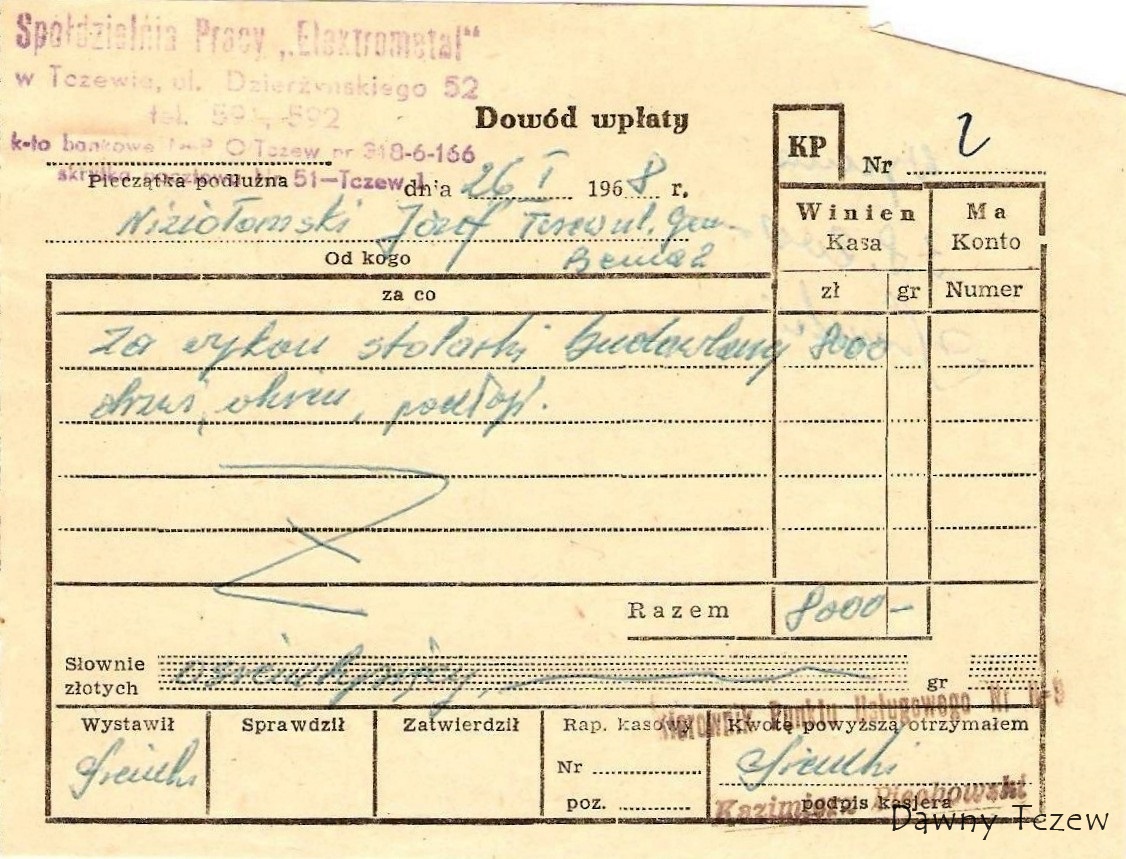 Spółdzielnia Pracy „Elektrometal"
w Tczewie, ul. Dzierżyńskiego 52
tel. 591, 592
k-to bankowe O/Tczew nr 318-6-166
skrytka pocztowa Nr 51—Tczew 1
Pieczątka podłużna
Dowód wpłaty
KP
Nr 2
dnia 26 I 1968 r.
Józef Tczew ul. Gen.
Bema 2
Od kogo
Winien
Kasa
Ma
Konto
za co
zł gr Numer
Za wykon stolarki budowlanej 8000
okien,
Razem 8000-
Słownie
złotych
gr
Kierownik Punktu Usługowego Nr
Wystawił Sprawdził Zatwierdził Rap. kasowy Kwotę powyższą otrzymałem
Nr
poz.
podpis kasjera
Kazimierz Piechowski
Dawny Tczew